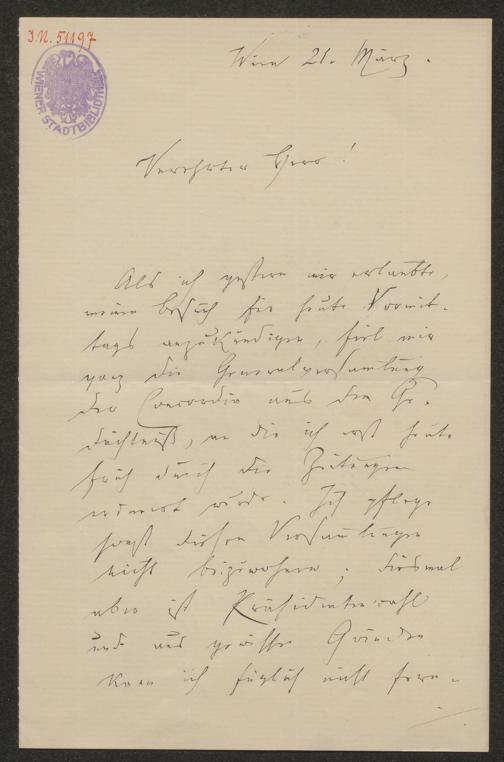 J.N. 51197
WIENER STADTBIBLIOTHEK
Wien 21. März.
Verehrter Herr!
Als ich gestern mir erlaubte,
meinen Besuch für heute Vormit-
tags anzukündigen, fiel mir
ganz die Generalversamlung
der Concordia aus dem Ge-
dächtniß, an die ich erst heute
früh durch die Zeitungen
erinnert wurde. Ich pflege
sonst diesen Versamlungen
nicht beizuwohnen; diesmal
aber ist Präsidentenwahl
und aus gewissen Gründen
kann ich füglich nicht fern-